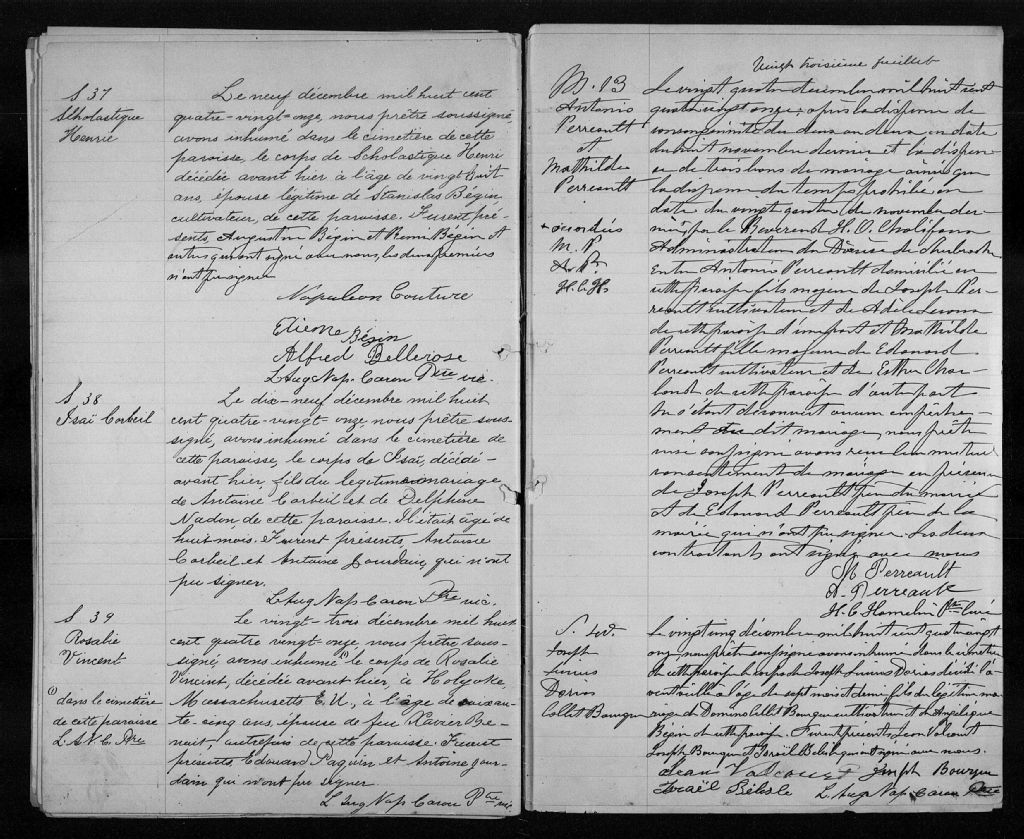 S 37
Scholastique
Henrie
Le neuf décembre mil huit cent
quatre-vingt-onze, nous prêtre soussigné,
avons inhumé dans le cimetière de cette
paroisse, le corps de Scholastique Henri
décédée avant hier à l'âge de vingt-huit
ans, épouse légitime de Stanislas Bégin
cultivateur, de cette paroisse. Furent pré-
sents, Augustin Bégin et Remi Bégin et
autres qui ont signé avec nous, les deux premiers
n'ont pu signer
Napoleon Couture
Etienne Bégin
Alfred Bellerose
L Aug Nap. Caron Ptre vic.
S 38
Isaï Corbeil
Le dix-neuf décembre mil huit
cent quatre-vingt-onze, nous prêtre sous-
signé, avons inhumé dans le cimetière de
cette paroisse, le corps de Isaï, décédé
avant hier, fils du legitime mariage
de Antoine Corbeil et de Delphine
Nadon, de cette paroisse. Il était âgé de
huit mois. Furent présents Antoine
Corbeil et Antoine Jourdain, qui n'ont
pu signer.
L Aug Nap. Caron Ptre vic.
S 39
Rosalie
Vincent
(1)
dans le cimetière
de cette paroisse
L. A. N. C. Ptre
Le vingt-trois décembre mil huit
cent quatre vingt-onze, nous prêtre sous-
signé, avons inhumé (1) le corps de Rosalie
Vincent, décédée avant hier, à Holyoke
Massachusetts E.U., à l'âge de soixan-
te-cinq ans, épouse de feu Xavier Be-
noit, autrefois de cette paroisse. Furent
présents Edouard Paquin et Antoine Jour-
dain qui n'ont pu signer.
L Aug Nap Caron Ptre vic
Vingt troisième feuillet
M. 13
Antonio
Perreault
et
Mathilde
Perreault
M. P.
A. P.
H. C. H.
Le vingt quatre décembre mil huit cent
quatre vingt onze, après la dispense de
consanguinité du deux au deux en date
du huit novembre dernier et la dispen-
se de trois bans de mariage ainsi que
la dispense du temps prohibé en
date du vingt quatre de novembre der-
nier, par le Reverend H. O. Chalifoux
Administrateur du Diocèse de Sherbrooke
Entre Antonio Perreault domicilié en
cette paroisse fils majeur de Joseph Per-
reault cultivateur et de Adèle
de cette paroisse d'une part et Mathilde
Perreault fille majeure de Edouard
Perreault cultivateur et de Esther Char-
de cette paroisse d'autre part
Ne s'étant découvert aucun empêche-
ment au dit mariage, nous prêtre
curé soussigné avons reçu leur mutuel
consentement de mariage en présence
de Joseph Perreault père du marié
et de Edouard Perreault père de la
mariée qui n'ont pu signer. Les deux
contractants ont signé avec nous
M Perreault
A. Perreault
H. C. Hamelin Ptre Curé
S.
Joseph
Louis
Darios
Collet Bourque
Le vingt cinq décembre mil huit cent quatre vingt
onze nous prêtre soussigné avons inhumé dans le cimetière
de cette paroisse le corps de Joseph Louis Darios décédé l'a-
vant veille à l'âge de sept mois et demi fils de légitime ma-
riage de Damino Collet Bourque cultivateur et de Angélique
Bégin de cette paroisse. Furent présents Jean Valcourt
Joseph Bourque et Israël Bélisle qui ont signé avec nous.
Jean Valcourt Joseph Bourque
Israël Bélisle L. Aug Nap Caron Ptre